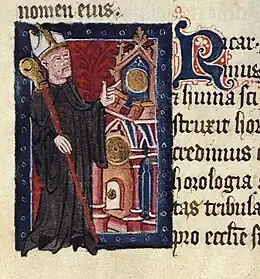 nomen eius.
Ricar
nius
& hiuna sci
struxit hor
credimus
horologia
tas tribula
pro ecclie